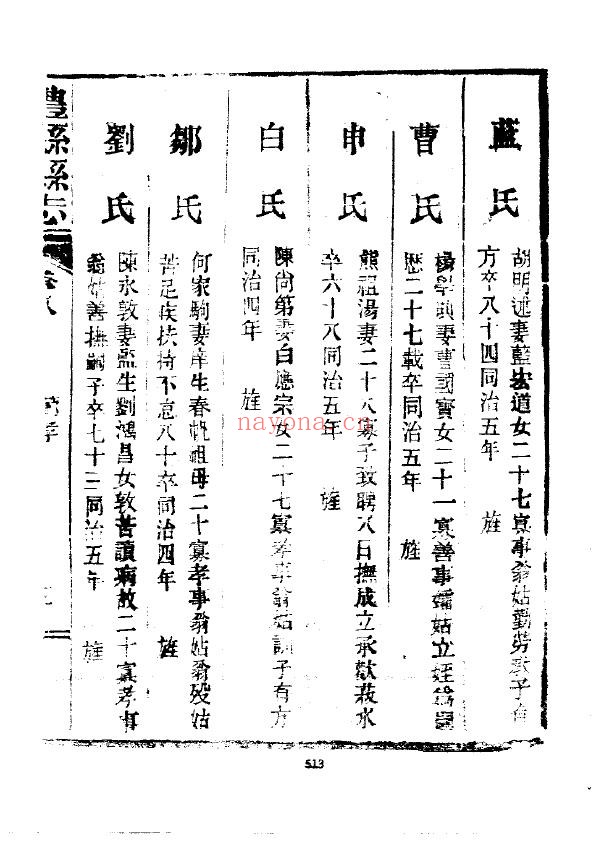 藍氏
胡明述妻藍宏道女二十七寡事翁姑勤勞教子有
方卒八十四同治五年 旌
曹氏
妻曹國寶女二十一寡善事孀姑立姪為嗣
歷二十七載卒同治五年 旌
申氏
熊祖湯妻二十八寡子敦聘八日撫成立承歡菽水
卒六十八同治五年 旌
白氏
陳尚第妻白應宗女二十七寡孝事翁姑訓子有方
同治四年 旌
鄒氏
何家駒妻庠生春帆祖母二十寡孝事翁姑翁歿姑
苦足疾扶持不怠八十卒同治四年 旌
劉氏
陳永敦妻監生劉鴻昌女敦苦讀病故二十寡孝事
翁姑善撫嗣子卒七十三同治五年 旌
豐縣志
卷八
513
nayona.cn